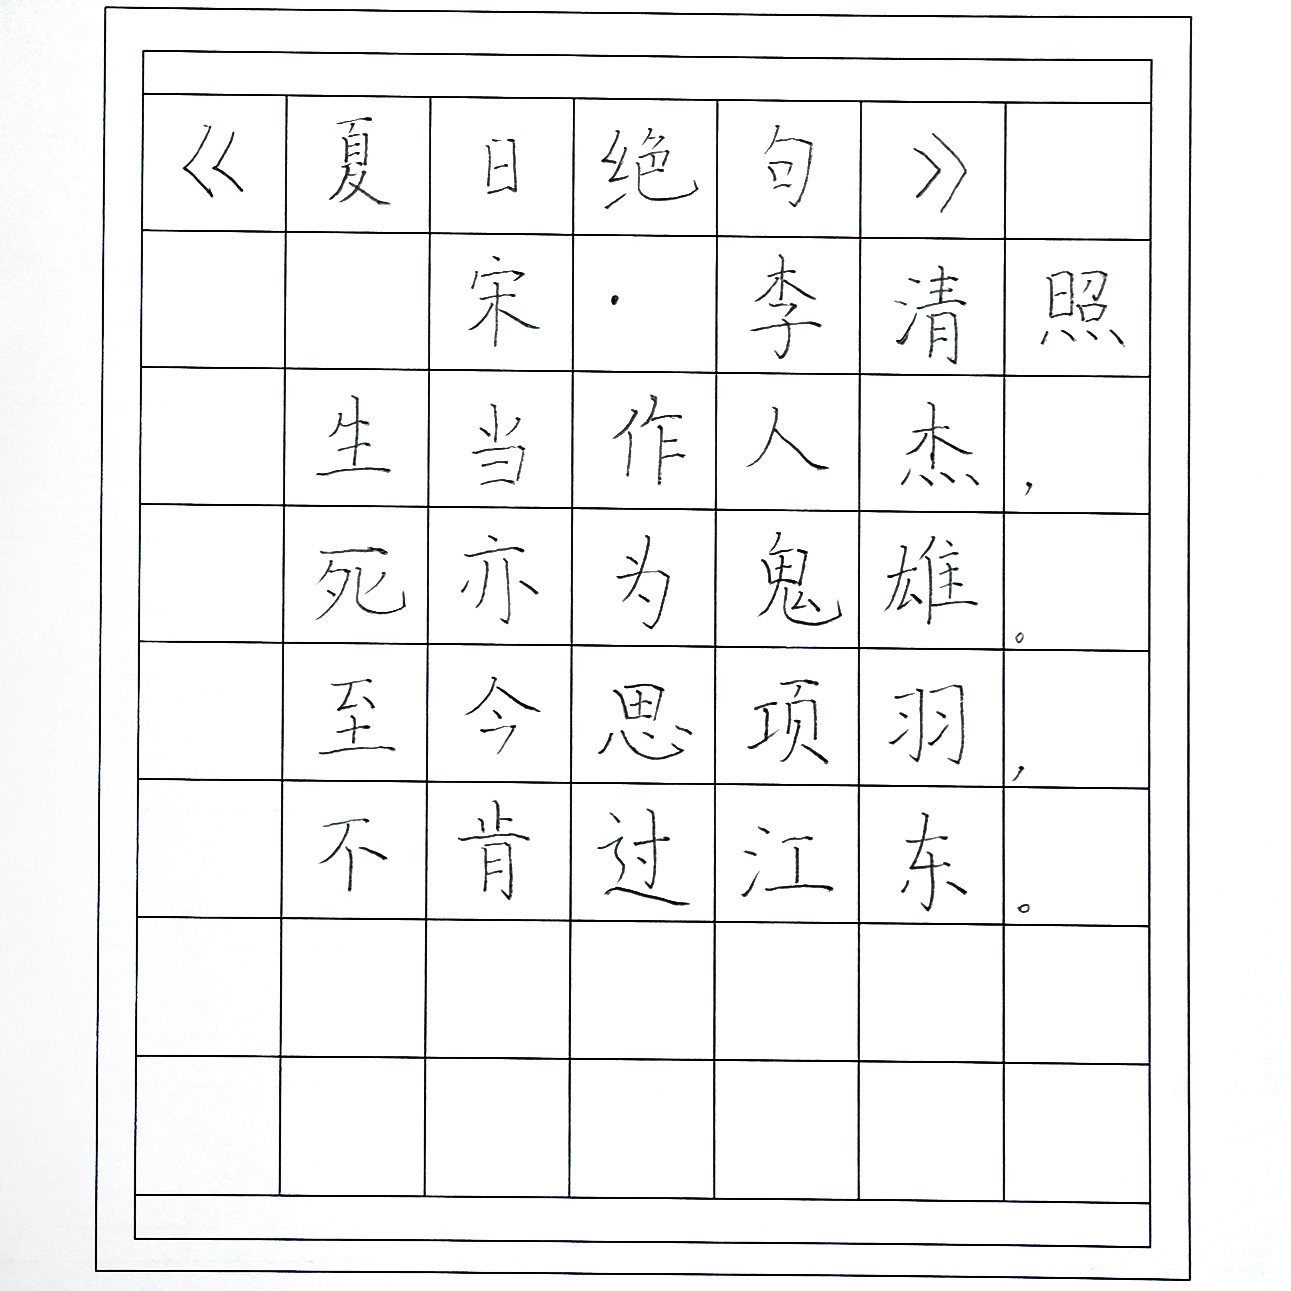 《夏日绝句》
宋·李清照
生当作人杰，
死亦为鬼雄。
至今思项羽，
不肯过江东。